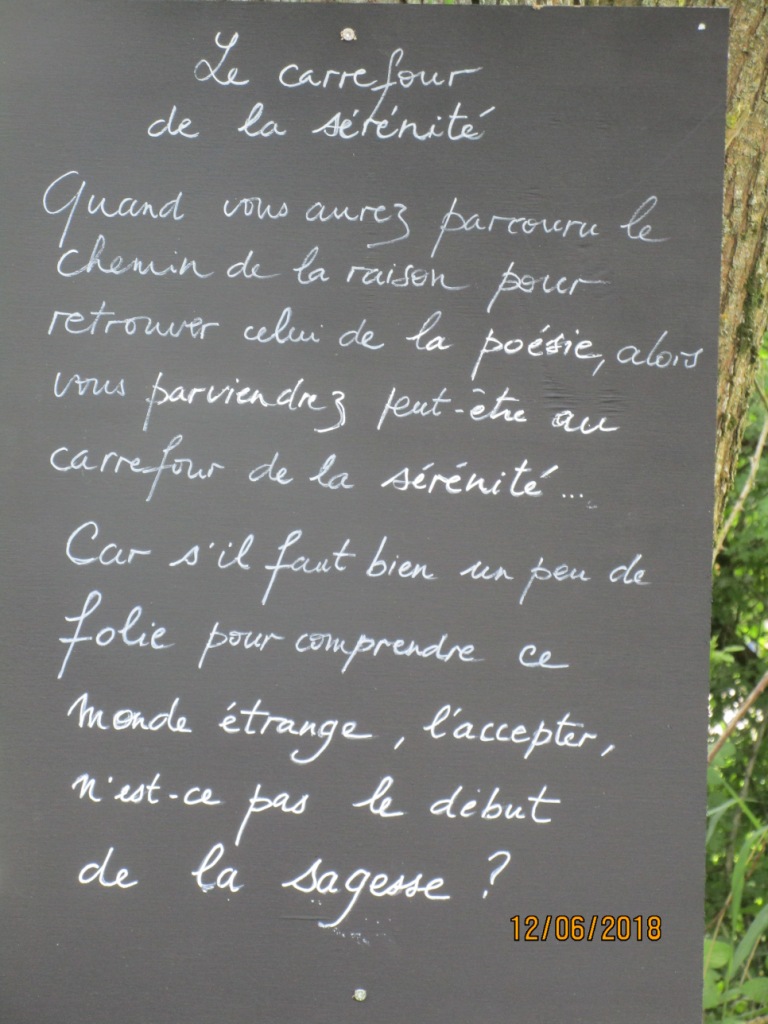 Le carrefour
de la sérénité
Quand vous aurez parcouru le
chemin de la raison pour
retrouver celui de la poésie, alors
vous parviendrez peut-être au
carrefour de la sérénité...
Car s'il faut bien un peu de
folie pour comprendre ce
monde étrange, l'accepter,
n'est-ce pas le début
de la sagesse ?
12/06/2018